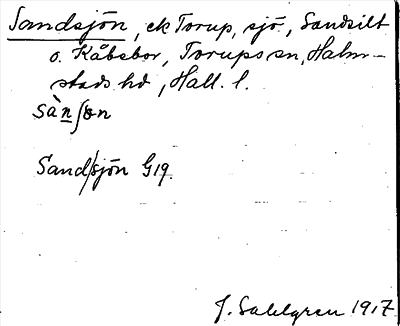 Sandsjön, ek Torup, sjö, Sandsilt
o. Kåbsbor, Torups sn, Halm-
stads hd, Hall. l.
sànʃɵn
Sand/sjön G19.
J. Sahlgren 1917